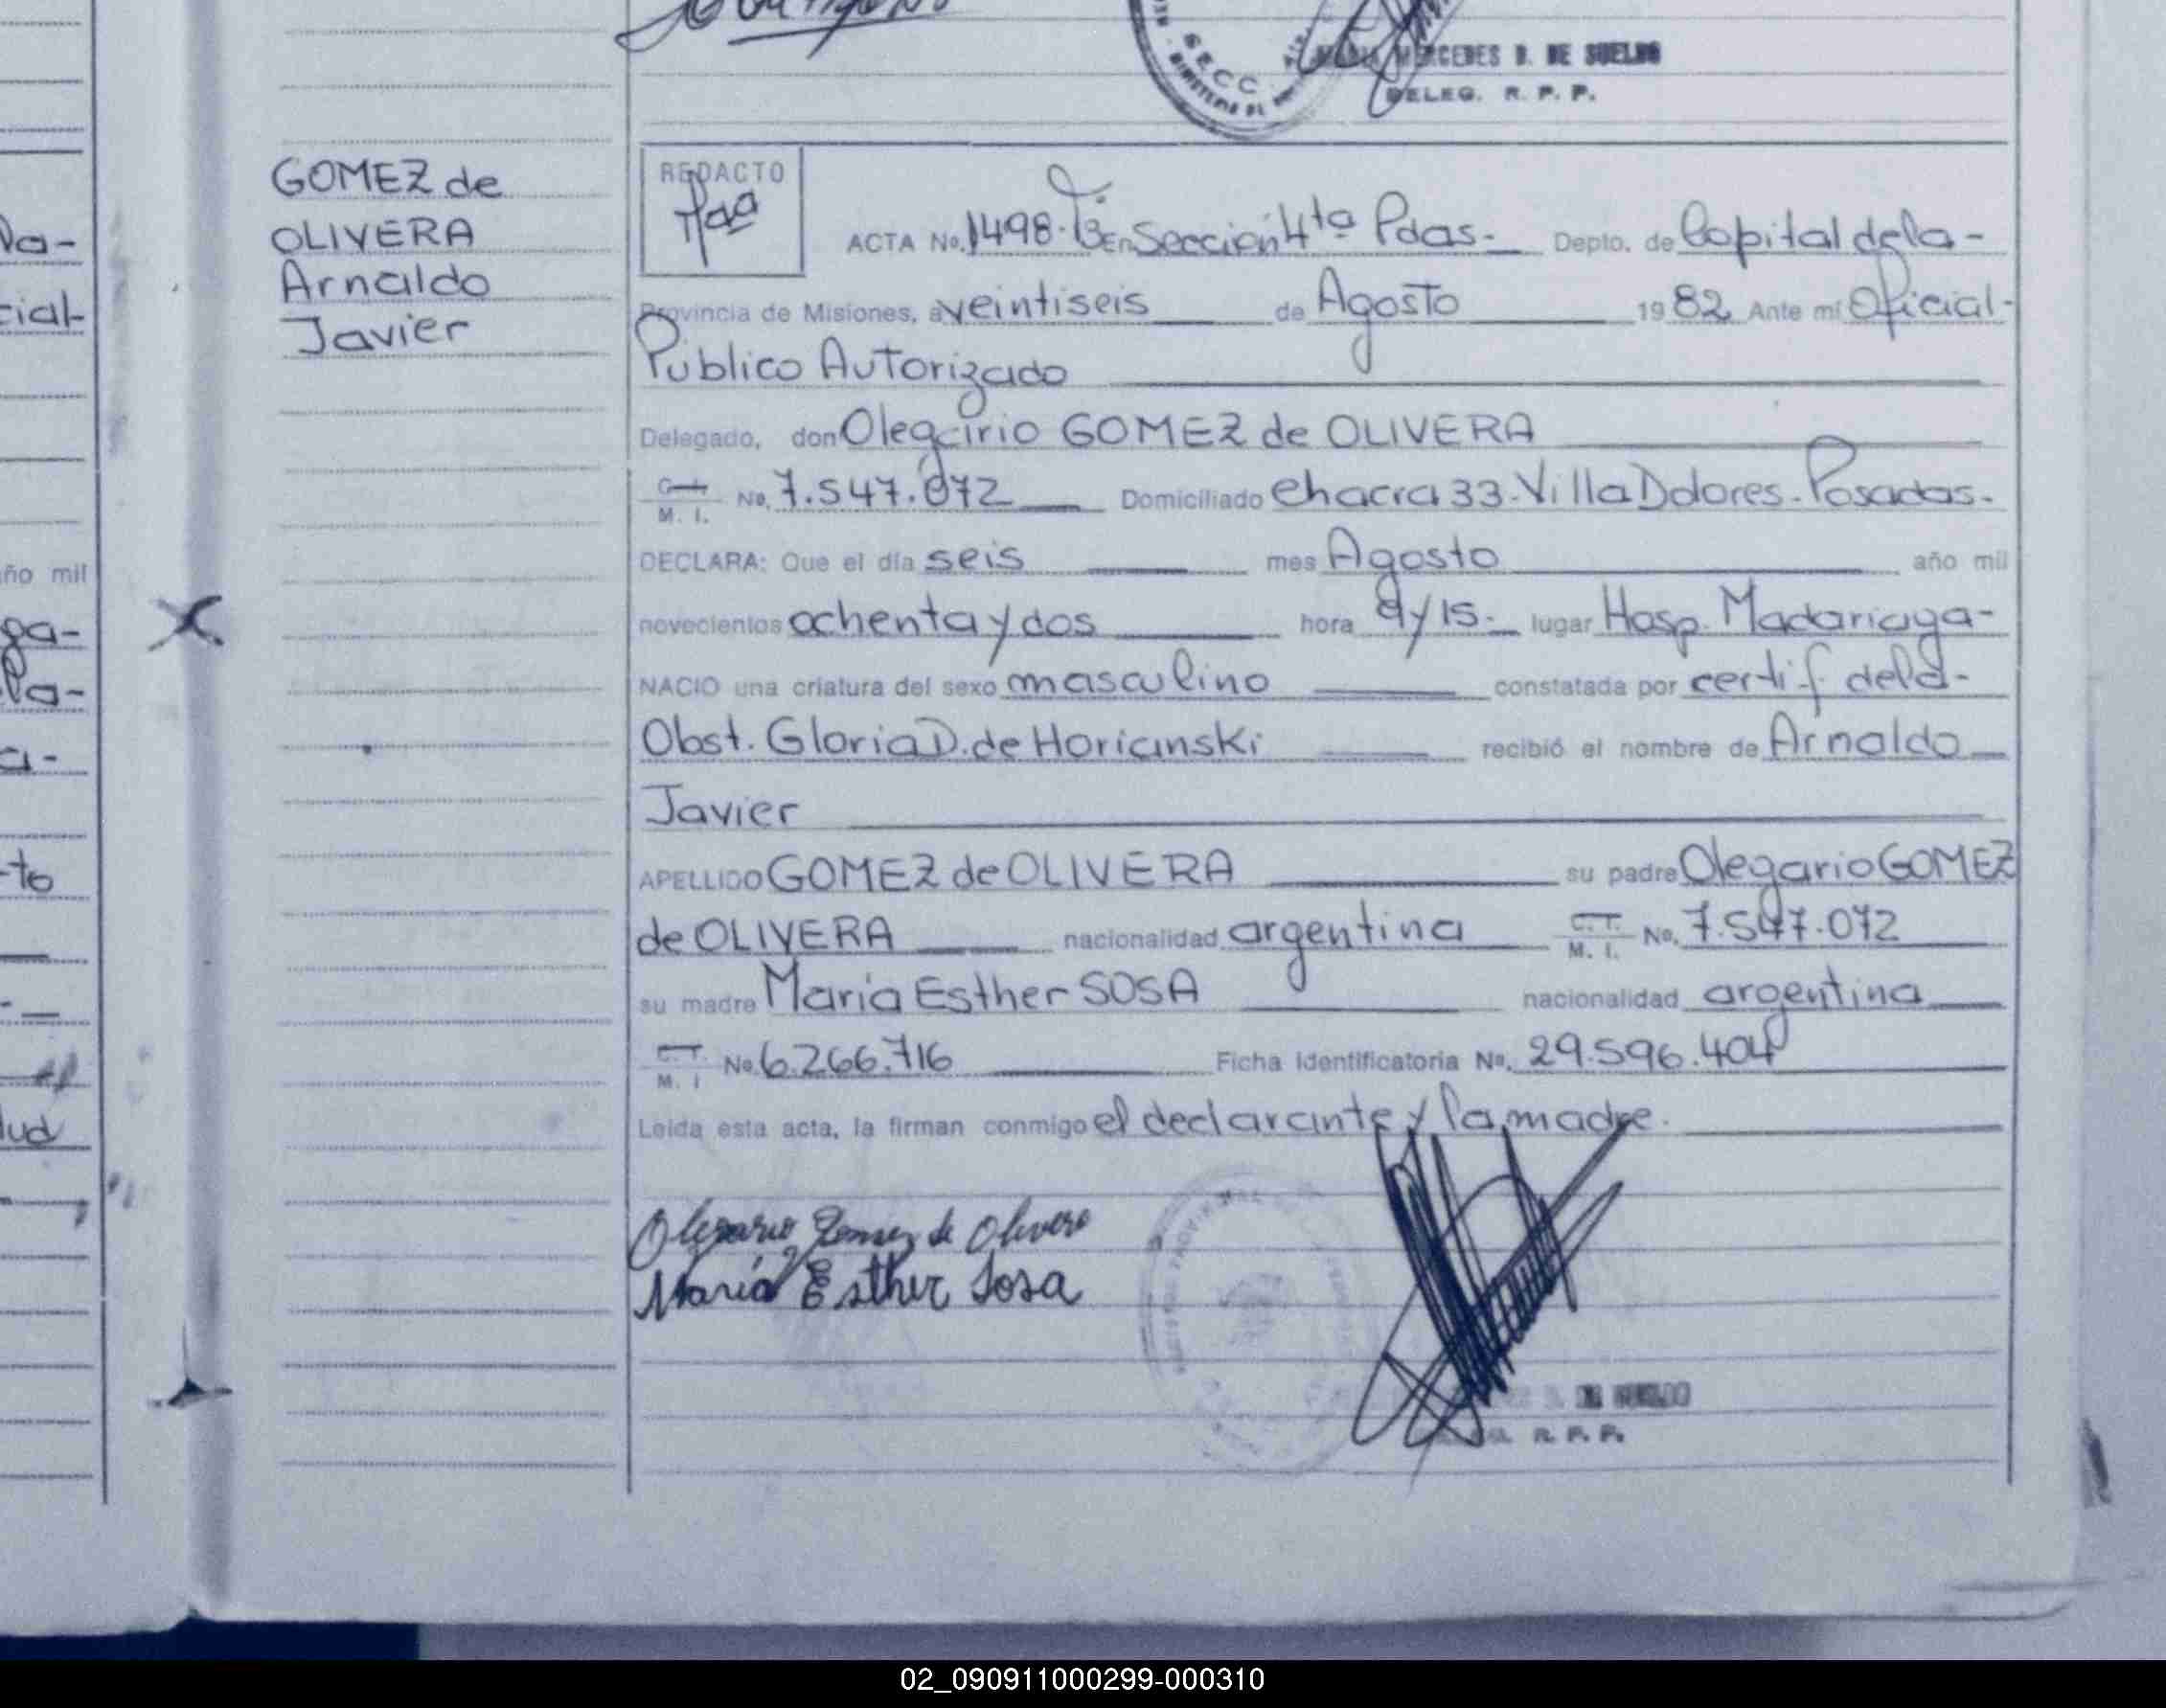 SECC.
MARIA MERCEDES B. DE SUELDO
DELEG. R. P. P.
GOMEZ de
OLIVERA
Arnaldo
Javier
REDACTO
ACTA No. 1498. En Sección 4ta Pdas.- Depto. de Capital de la-
Provincia de Misiones, a veintiseis de Agosto 1982 Ante mí Oficial-
Público Autorizado
Delegado, don Olegario GOMEZ de OLIVERA
M. I. No. 7.547.072 Domiciliado Chacra 33-Villa Dolores-Posadas.
DECLARA: Que el día seis mes Agosto año mil
novecientos ochenta y dos hora 9 y 15.- lugar Hosp. Madariaga-
NACIO una criatura del sexo masculino constatada por certif de la-
Obst. Gloria D. de Horianski recibió el nombre de Arnaldo
Javier
APELLIDO GOMEZ de OLIVERA su padre Olegario GOMEZ
de OLIVERA nacionalidad argentina M. I. No. 7.547.072
su madre María Esther SOSA nacionalidad argentina
M. I No 6.266.716 Ficha Identificatoria No. 29.596.404
Leída esta acta, la firman conmigo el declarante y la madre.
Olegario Gomez de Olivera
María Esther Sosa
DE SUELDO
R. P. P.
la-
cial-
año mil
ga-
la-
a-
to
lud
02_090911000299-000310